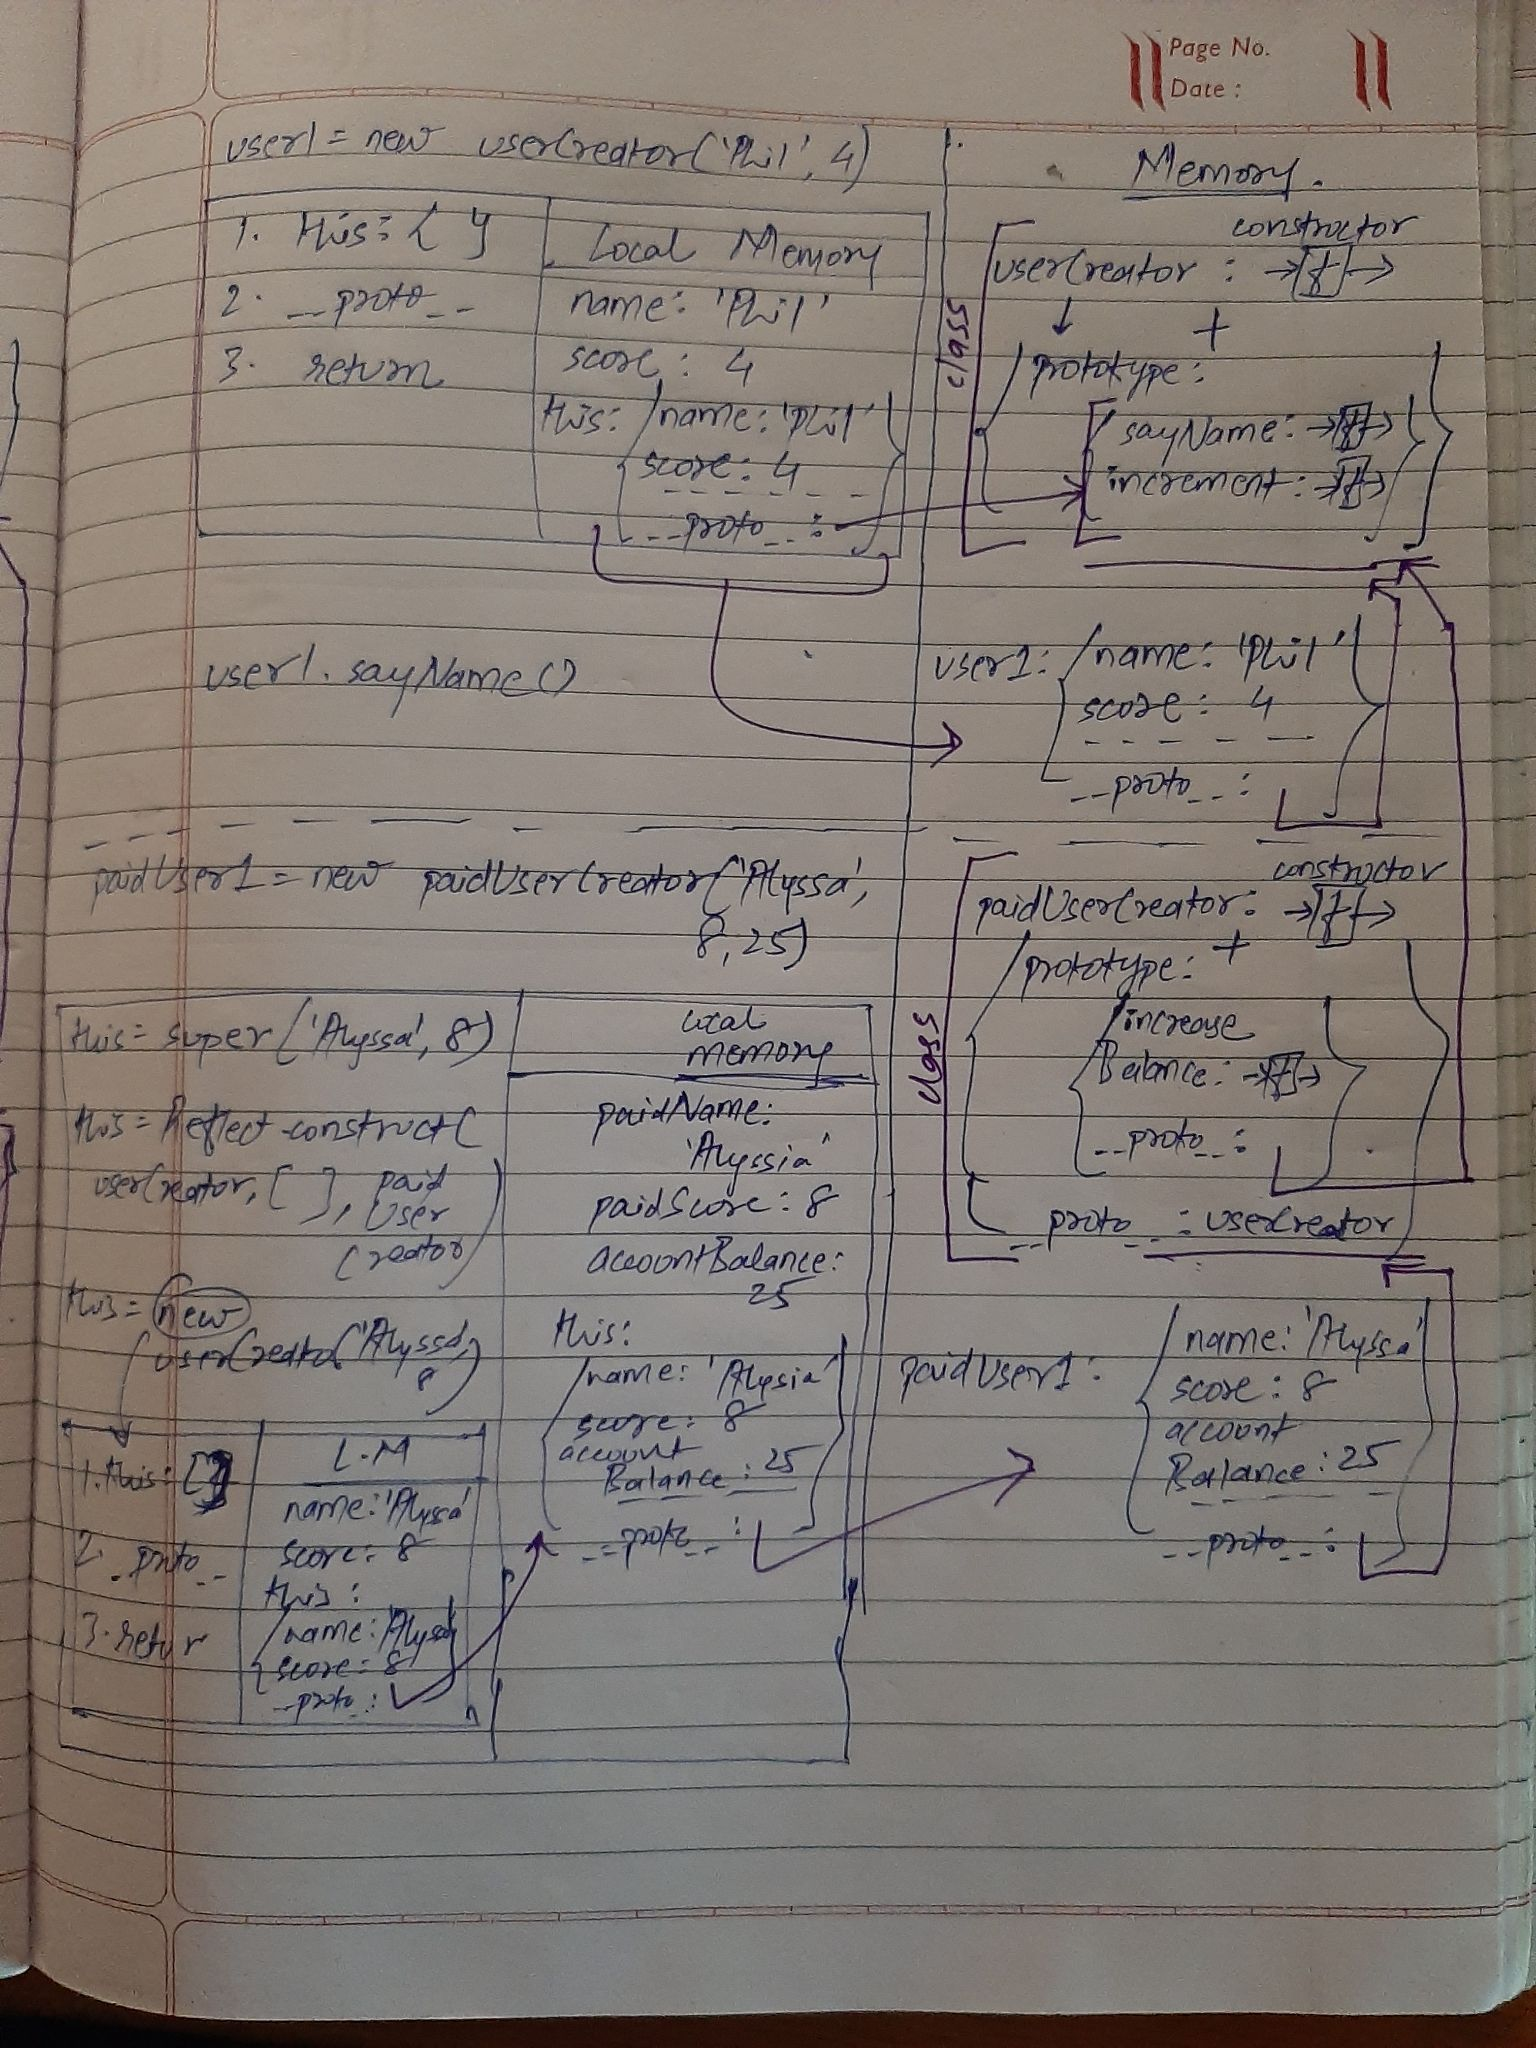 Page No.
Date :
user1 = new userCreator('Phil', 4)
1. this: { }
2. __proto__
3. return
Local Memory
name: 'Phil'
score: 4
this: { name: 'Phil'
score: 4
__proto__: }
user1.sayName()
Memory.
class
constructor
userCreator : →[f]→
↓ +
{ prototype:
{ sayName: →[f]→
increment: →[f]→ } }
user1: { name: 'Phil'
score: 4
__proto__: }
paidUser1 = new paidUserCreator('Alyssa',
8, 25)
this = super('Alyssa', 8)
this = Reflect.construct(
userCreator, [ ], paid
User
Creator)
this = new
userCreator('Alyssa',
8)
1. this: { }
2. _proto__
3. retur
L.M
name: 'Alyssa'
score: 8
this:
{ name: 'Alyssa'
score: 8
__proto_: }
Local
memory
paidName:
'Alyssia'
paidScore: 8
accountBalance:
25
this:
{ name: 'Alysia'
score: 8
account
Balance: 25
__proto__: }
class
constructor
paidUserCreator: →[f]→
{ prototype: +
{ increase
Balance: →[f]→
__proto__: }
__proto__: userCreator }
paidUser1: { name: 'Alyssa'
score: 8
account
Balance: 25
__proto__: }